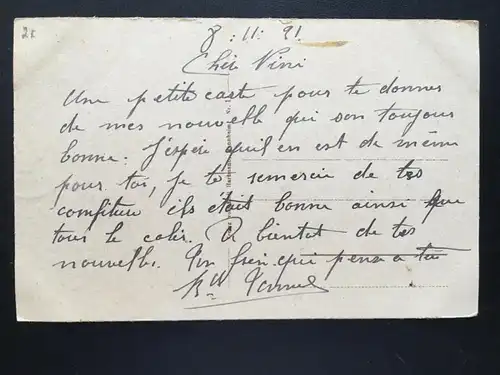 2x
8 : 11 : 91
Chèr Nini
Une petite carte pour te donner
de mes nouvelle qui son toujour
bonne. J'espère qu'il en est de même
pour toi, Je te remercie de tes
confiture ils était bonne ainsi que
tous le colis. A bientot de tes
nouvelle. Ton frèr qui pense a toi